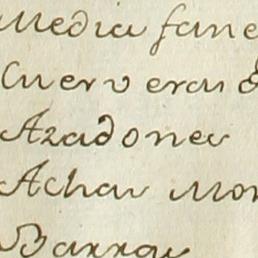 Media fane
Cuerv eran
Azadones
Achas Mon
Barras